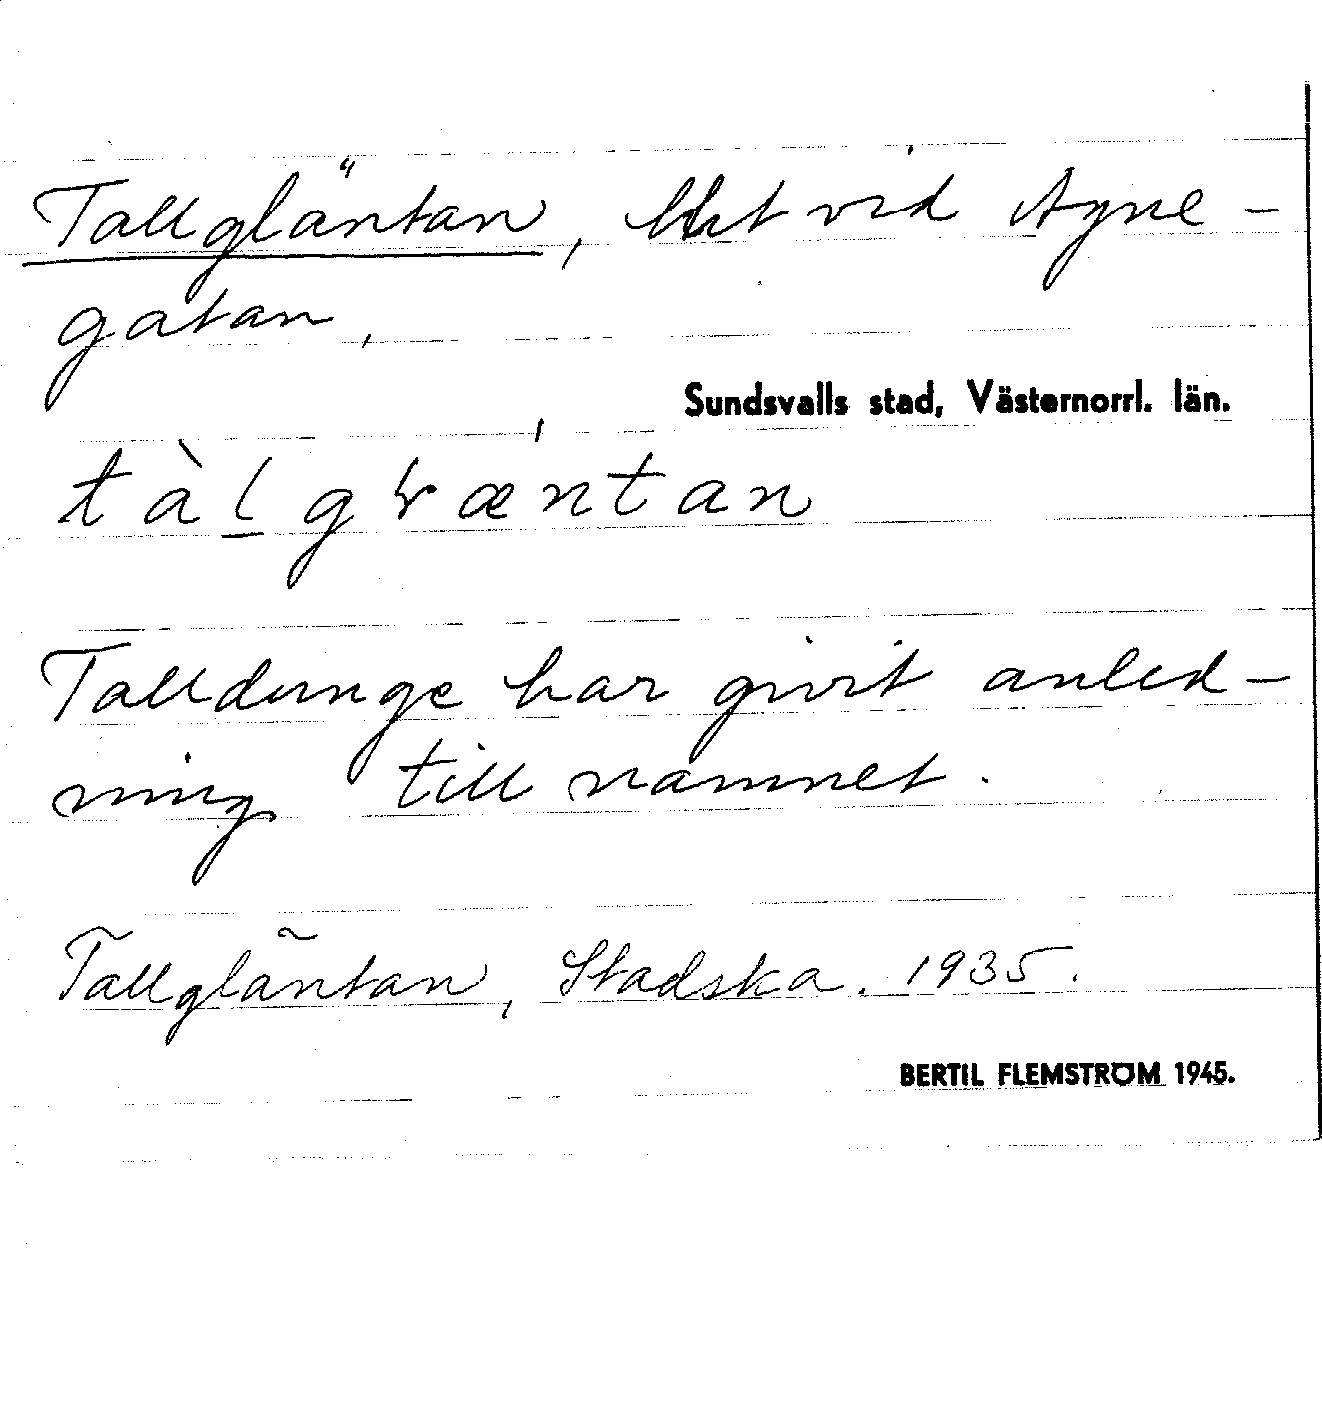 Tallgläntan, litet vid Agne-
gatan,
Sundsvalls stad, Västernorrl. län.
tàl̲gɽæntan
Talldunge har givit anled-
ning till namnet.
Tallgläntan, Stadska. 1935.
BERTIL FLEMSTRÖM 1945.